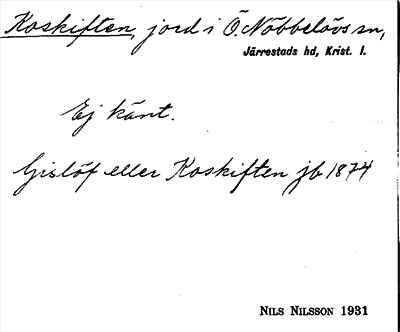 Koskiften, jord i Ö. Nöbbelövs sn,
Järrestads hd, Krist. l.
Ej känt.
Gislöf eller Koskiften jb 1874
NILS NILSSON 1931